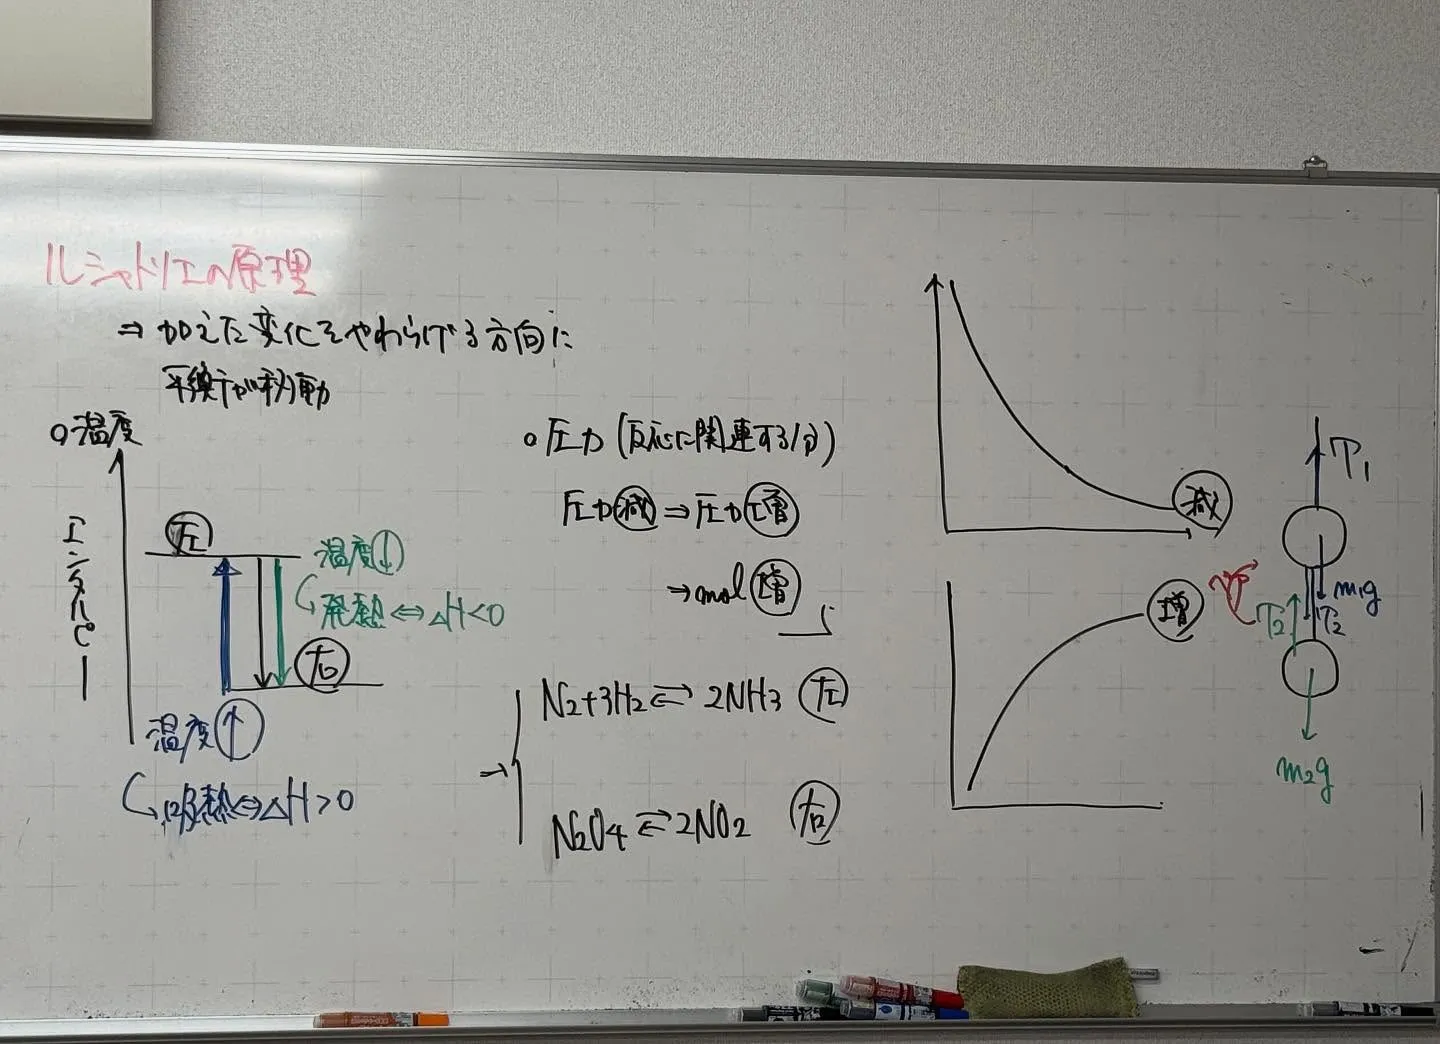 ルシャトリエの原理
⇒ 加えた変化をやわらげる方向に
平衡が移動
○温度
エンタルピー
左
温度↓
発熱⇔△H<0
右
温度↑
吸熱⇔△H>0
○圧力(反応に関連する分)
圧力減⇒圧力増
→mol増
N2+3H2⇄2NH3 左
N2O4⇄2NO2 右
減
増
T1
m1g
T2
T2
m2g